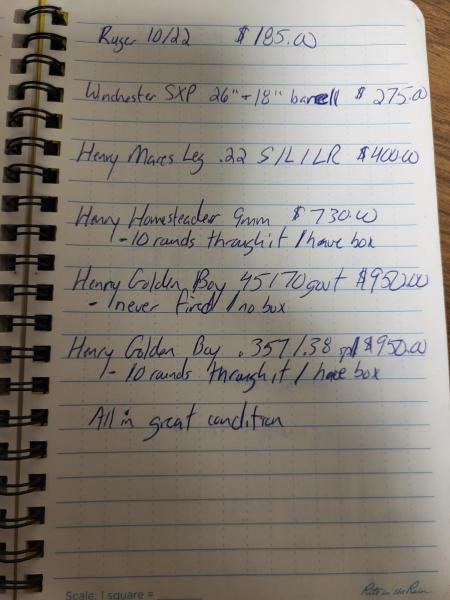 Ruger 10/22 $185.00
Winchester SXP 26" + 18" barrell $275.00
Henry Mares Leg .22 S/L/LR $400.00
Henry Homesteader 9mm $730.00
- 10 rounds through it / have box
Henry Golden Boy 45/70 govt $950.00
- never fired / no box
Henry Golden Boy .357/.38 spl $950.00
- 10 rounds through it / have box
All in great condition
Scale: 1 square =
Rite in the Rain